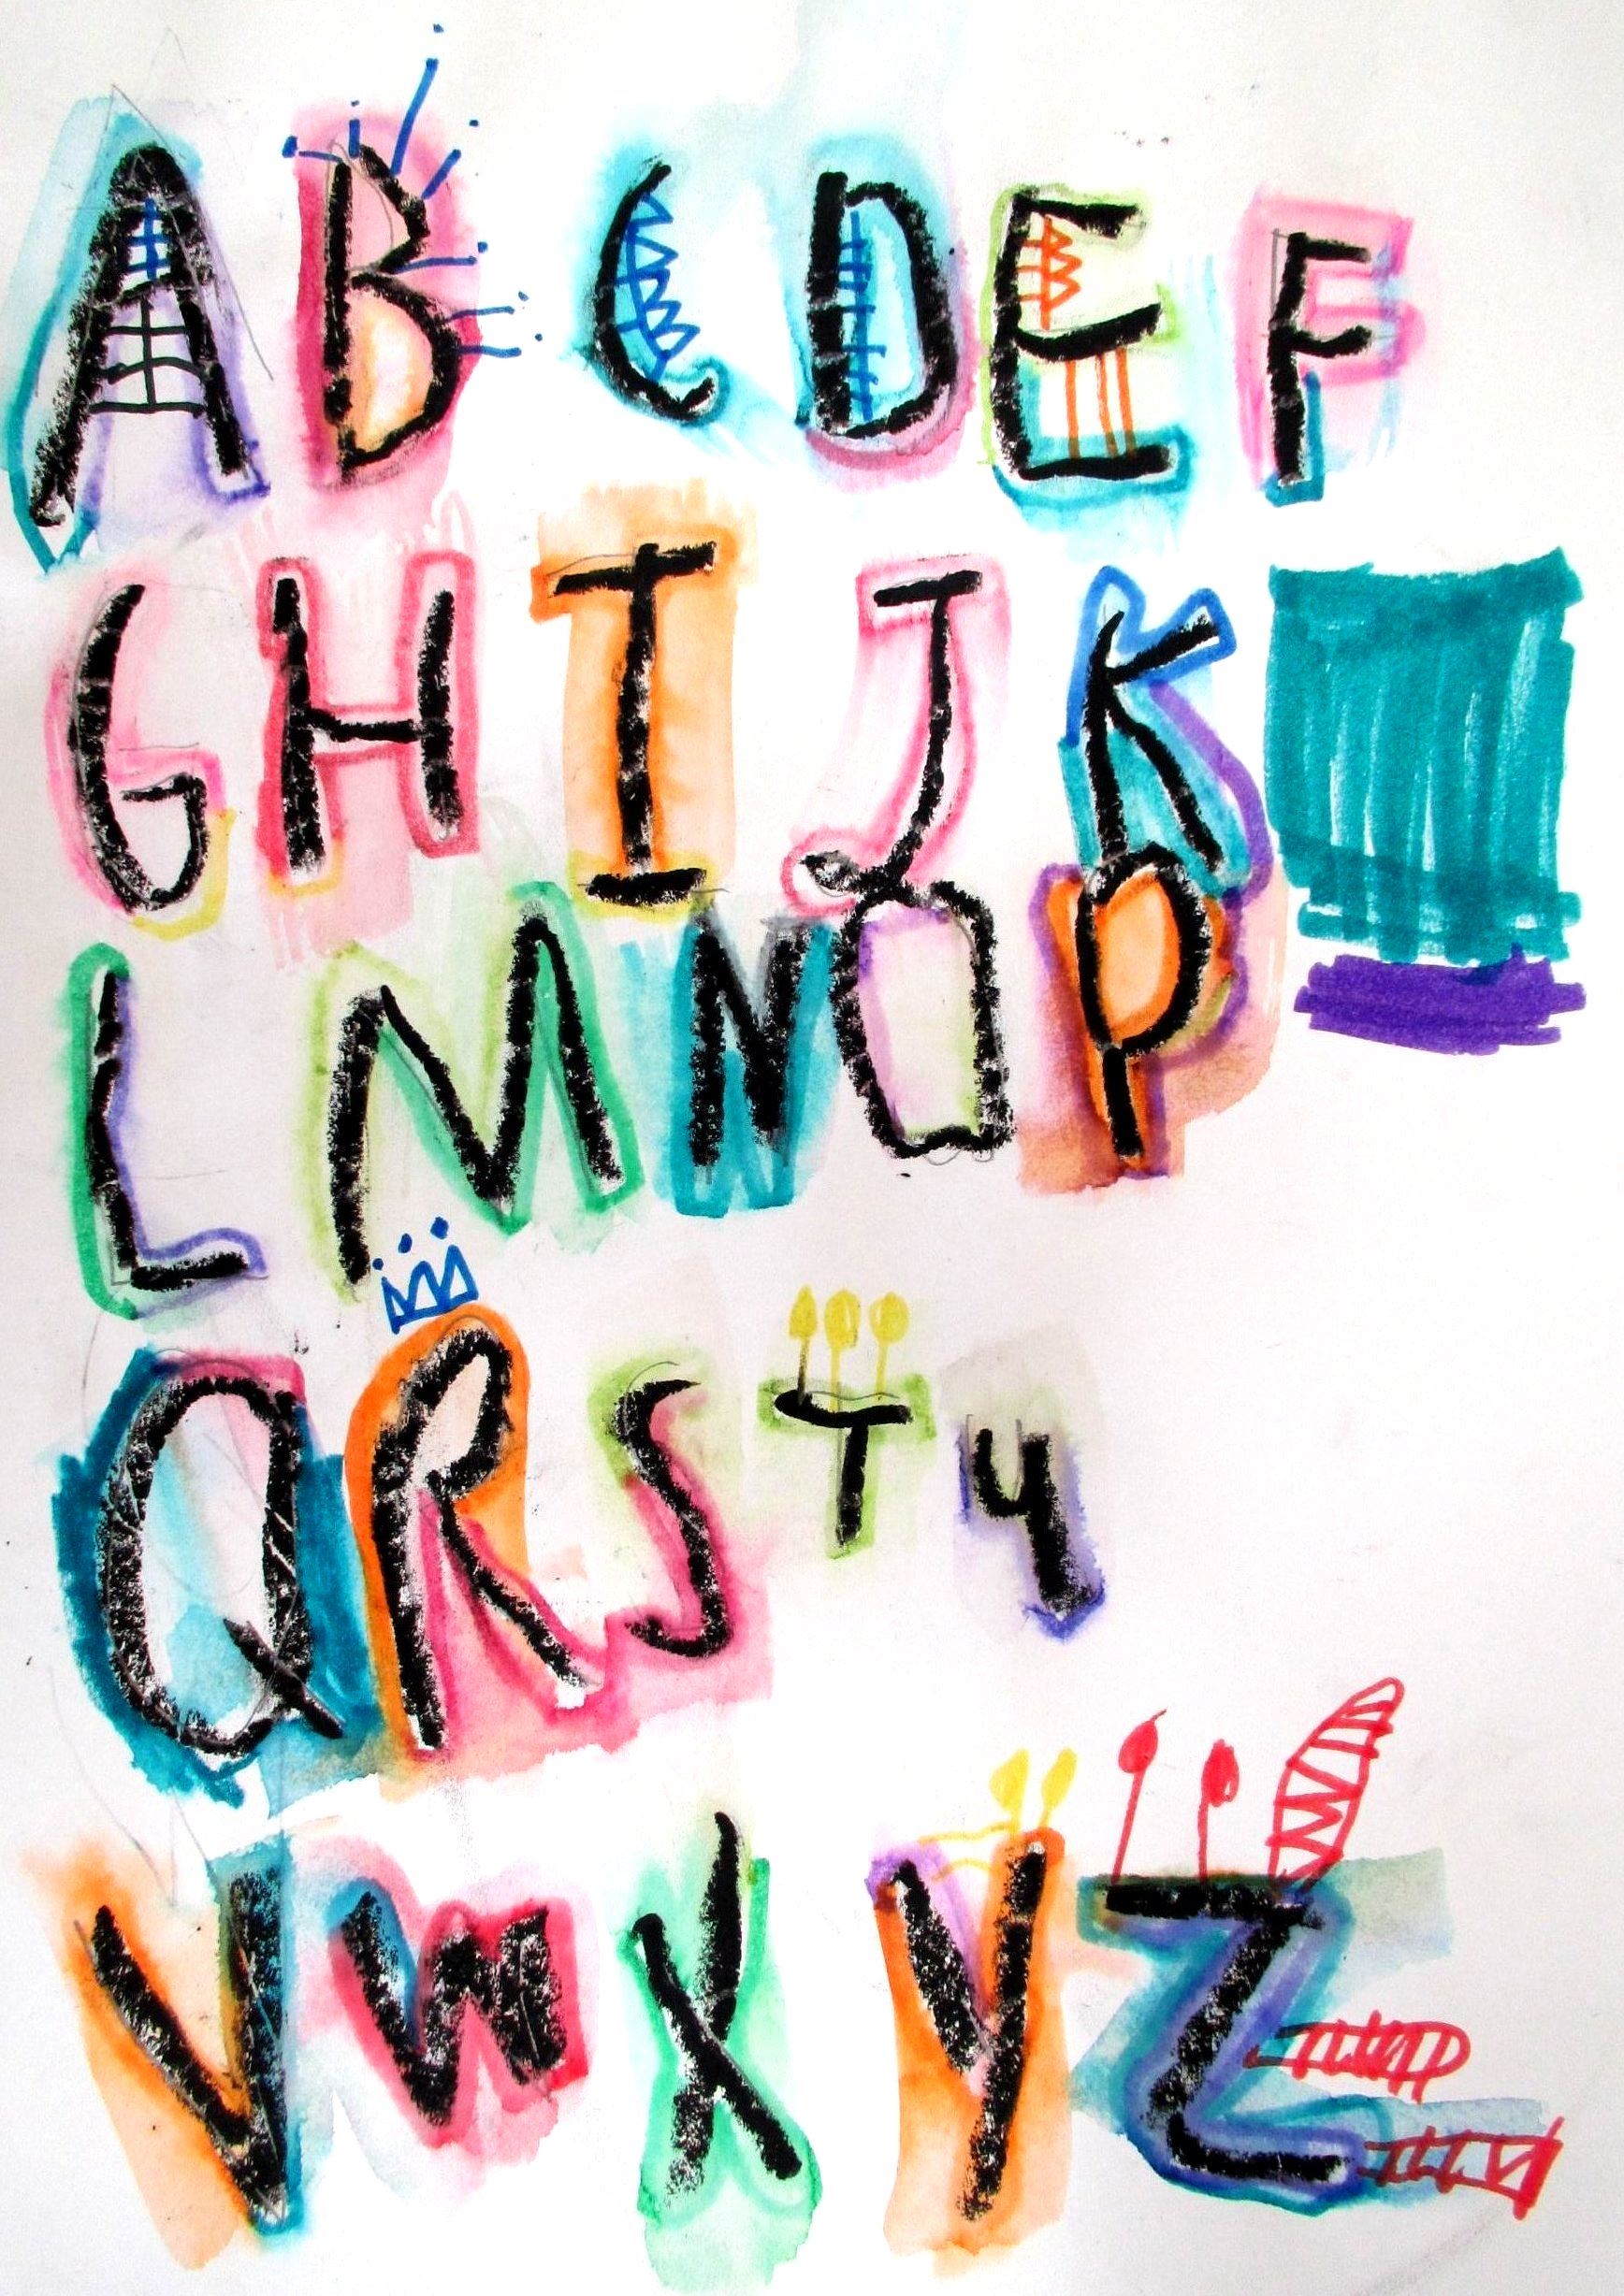 A B C D E F
G H I J K
L M N O P
Q R S T u
V W X Y Z